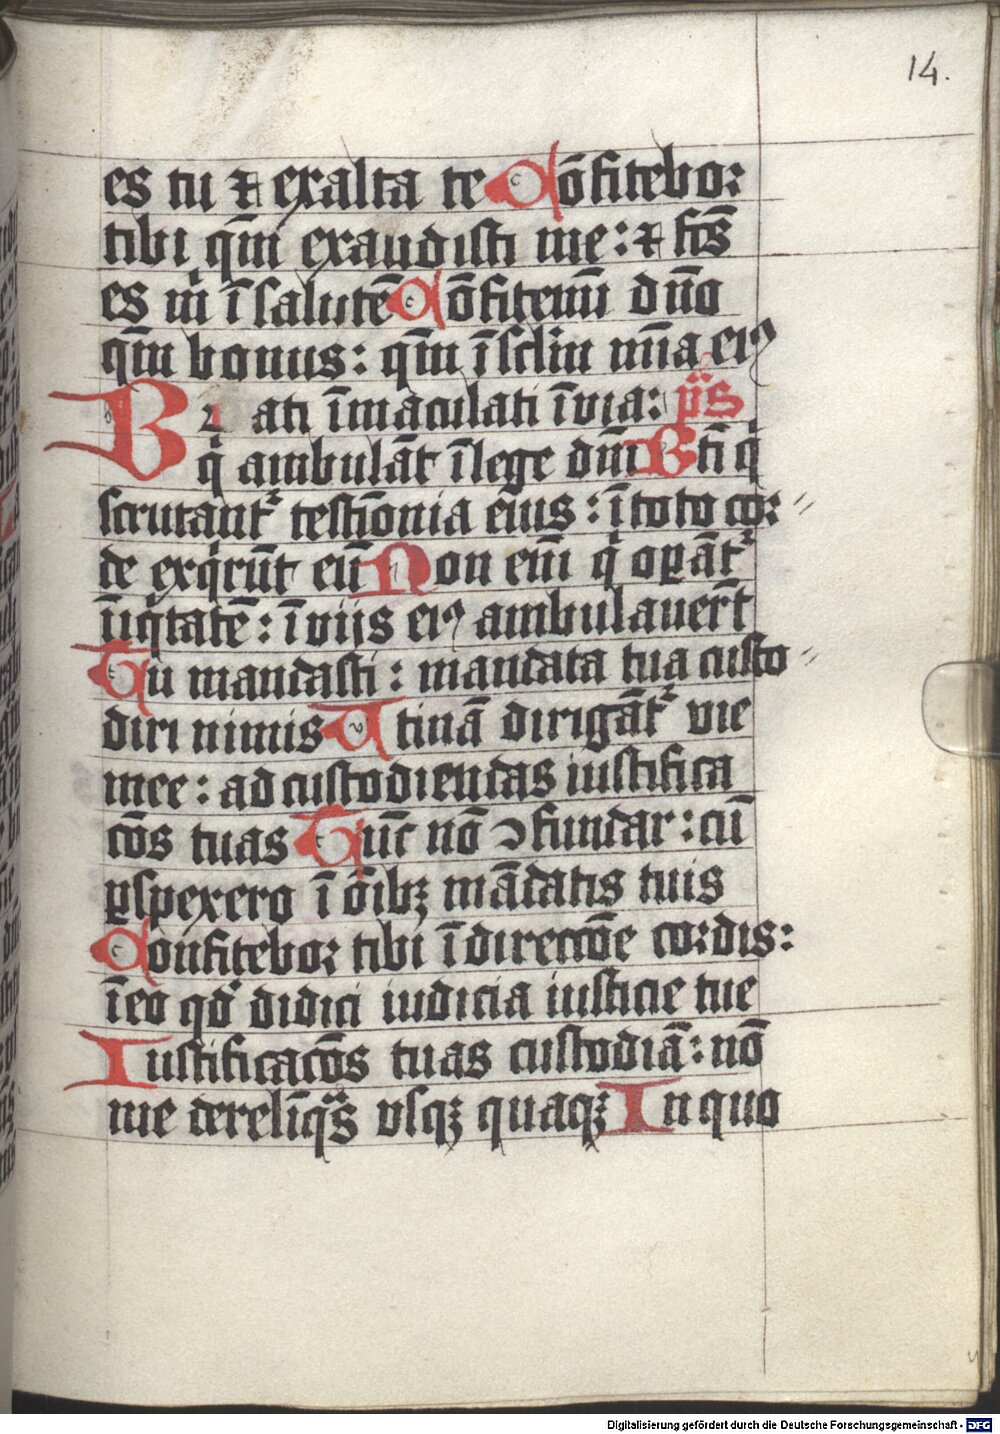 14.
es tu ⁊ exalta te Cōfitebor
tibi qm̄ exaudisti me: ⁊ fc̄s
es m̄ ī salutē Cōfitemī dn̄o
qm̄ bonus: qm̄ ī sc̄lm mīa eiꝰ
Beati īmaculati ī via: p̄s
q̇ ambulāt ī lege dn̄i Bt̄i q̇
scrutant᷑ testīonia eius: ī toto cor⸗
de exq̇rūt eū Non em̄ q̇ opāt᷑
īiq̇tatē: ī viis eiꝰ ambulauer̄t
Tu mandasti: mandata tua custo⸗
diri nimis Utinā dirigāt᷑ vie
mee: ad custodiendas iustifica
cōs tuas Tūc nō ꝯfundar: cū
ꝑspexero ī oībꝫ mādatis tuis
Confitebor tibi ī directiōe cordis:
ī eo qd̄ didici iudicia iusticie tue
Iustificacōs tuas custodiā: nō
me derelīq̄s vsqꝫ quaqꝫ In quo
Digitalisierung gefördert durch die Deutsche Forschungsgemeinschaft - DFG